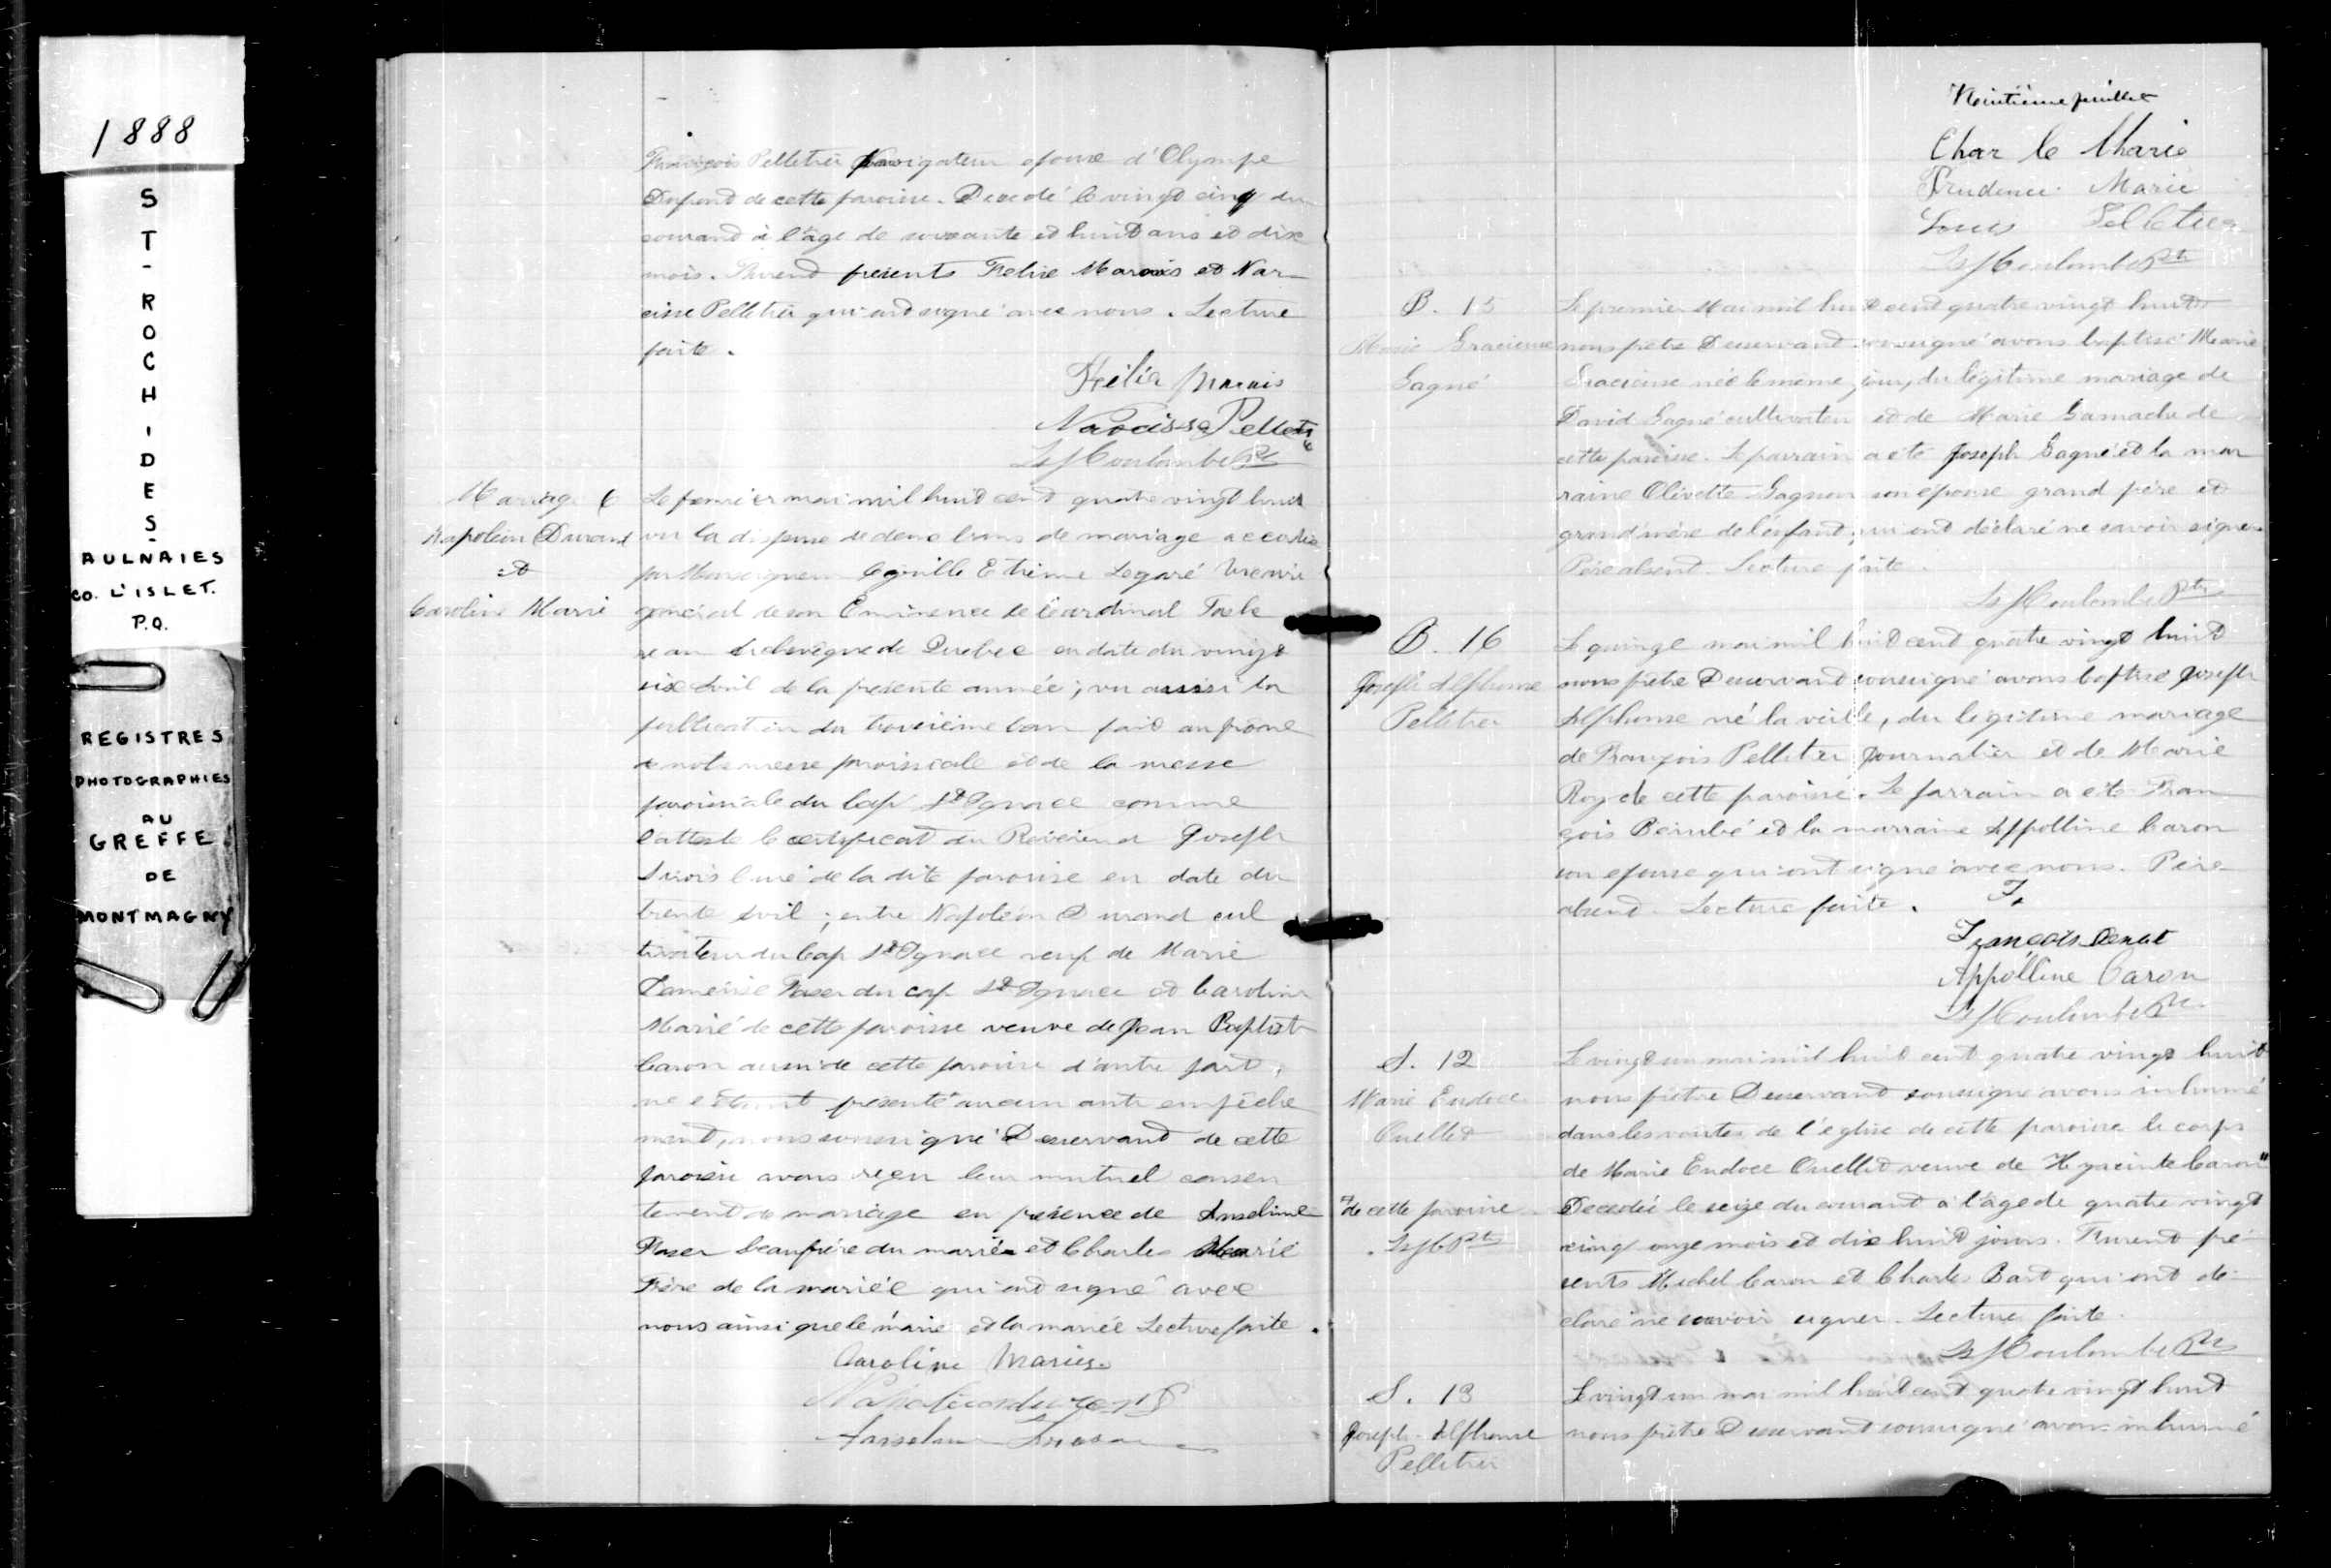 1888
ST-ROCH-DES-
AULNAIES
CO. L'ISLET.
P.Q.
REGISTRES
PHOTOGRAPHIES
AU
GREFFE
DE
MONTMAGNY
François Pelletier Navigateur epoux d'Olympe
Dupont de cette paroisse. Decedé le vingt cinq du
courant à l'âge de soixante et huit ans et dix
mois. Furent présents Felix Marois et Nar-
cisse Pelletier qui ont signé avec nous. Lecture
faite.
Félix Marois
Narcisse Pelletier
Ls J Coulombe Ptr
Mariage 6
Napoléon Durand
et
Caroline Marié
Le premier mai mil huit cent quatre vingt huit
vu la dispense de deux bans de mariage accordée
par Monseigneur Cyrille Etienne Legaré Vicaire
général de son Eminence le Cardinal Tache
reau Archevêque de Quebec en date du vingt
six Avril de la presente année; vu aussi la
publication du troisième ban fait au prône
de notre messe paroissiale et de la messe
paroissiale du Cap St Ignace comme
l'atteste le certificat du Révérend Joseph
Sirois Curé de la dite paroisse en date du
trente Avril; entre Napoléon Durand cul
tivateur du Cap St Ignace veuf de Marie
du cap St Ignace et Caroline
Marié de cette paroisse veuve de Jean Baptiste
Caron aussi de cette paroisse d'autre part,
ne s'étant présenté aucun autre empêche
ment, nous soussigné Desservant de cette
paroisse avons reçu leur mutuel consen
tement de mariage en présence de Anselme
Fraser beaufrère du marié et Charles Marié
Frère de la mariée qui ont signé avec
nous ainsi que le marié et la mariée Lecture faite.
Caroline Mariés
Napoleon durand
Anselme
Huitième feuillet
Char le Marie
Prudence Marié
Louis Pelletier
Ls J Coulombe Ptr
B. 15
Marie Gracieuse
Gagné
Le premier Mai mil huit cent quatre vingt huit
nous prêtre Desservant soussigné avons baptisé Marie
Gracieuse née le même jour, du légitime mariage de
David Gagné cultivateur et de Marie Gamache de
cette paroisse. Le parrain a été Joseph Gagné et la mar
raine Olivette Gagnon son épouse grand père et
grand'mère de l'enfant, qui ont déclaré ne savoir signer
Père absent. Lecture faite.
Ls J Coulombe Ptr
B. 16
Joseph Alphonse
Pelletier
Le quinze mai mil huit cent quatre vingt huit
nous prêtre Desservant soussigné avons baptisé Joseph
Alphonse né la veille, du légitime mariage
de François Pelletier Journalier et de Marie
Roy de cette paroisse. Le parrain a été Fran
çois Bérubé et la marraine Appolline Caron
son épouse qui ont signé avec nous. Père
absent. Lecture faite. F.
François
Appolline Caron
Ls J Coulombe Ptr
S. 12
Marie Eudoce
Ouellet
Le vingt un mai mil huit cent quatre vingt huit
nous prêtre Desservant soussigné avons inhumé
dans les voûtes de l'église de cette paroisse le corps
de Marie Eudoce Ouellet veuve de Hyacinte Caron"
" de cette paroisse
Ls J C Ptr
Decedée le seize du courant à l'âge de quatre vingt
cinq onze mois et dix huit jours. Furent pré
sents Michel Caron et Charles Bart qui ont dé-
claré ne savoir signer. Lecture faite.
Ls J Coulombe Ptr
S. 13
Joseph Alphonse
Pelletier
Le vingt un mai mil huit cent quatre vingt huit
nous prêtre Desservant soussigné avons inhumé